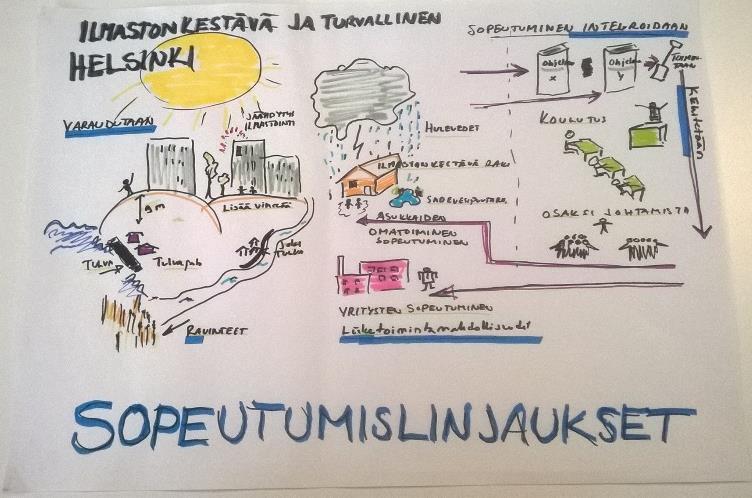 ILMASTONKESTÄVÄ JA TURVALLINEN
HELSINKI
VARAUDUTAAN
JÄÄHDYTYS
ILMASTOINTI
9m
LISÄÄ VIHREÄÄ
TULVA
RAVINTEET
HULEVEDET
ILMASTONKESTÄVÄ
SADEVESIPUUTARH.
ASUKKAIDEN
OMATOIMINEN
SOPEUTUMINEN
YRITYSTEN SOPEUTUMINEN
Liiketoimintamahdollisuudet
SOPEUTUMINEN INTEGROIDAAN
Ohjelm
x
Ohjelm
y
KOULUTUS
OSAKSI JOHTAMISTA
KEHITETÄÄN
SOPEUTUMISLINJAUKSET